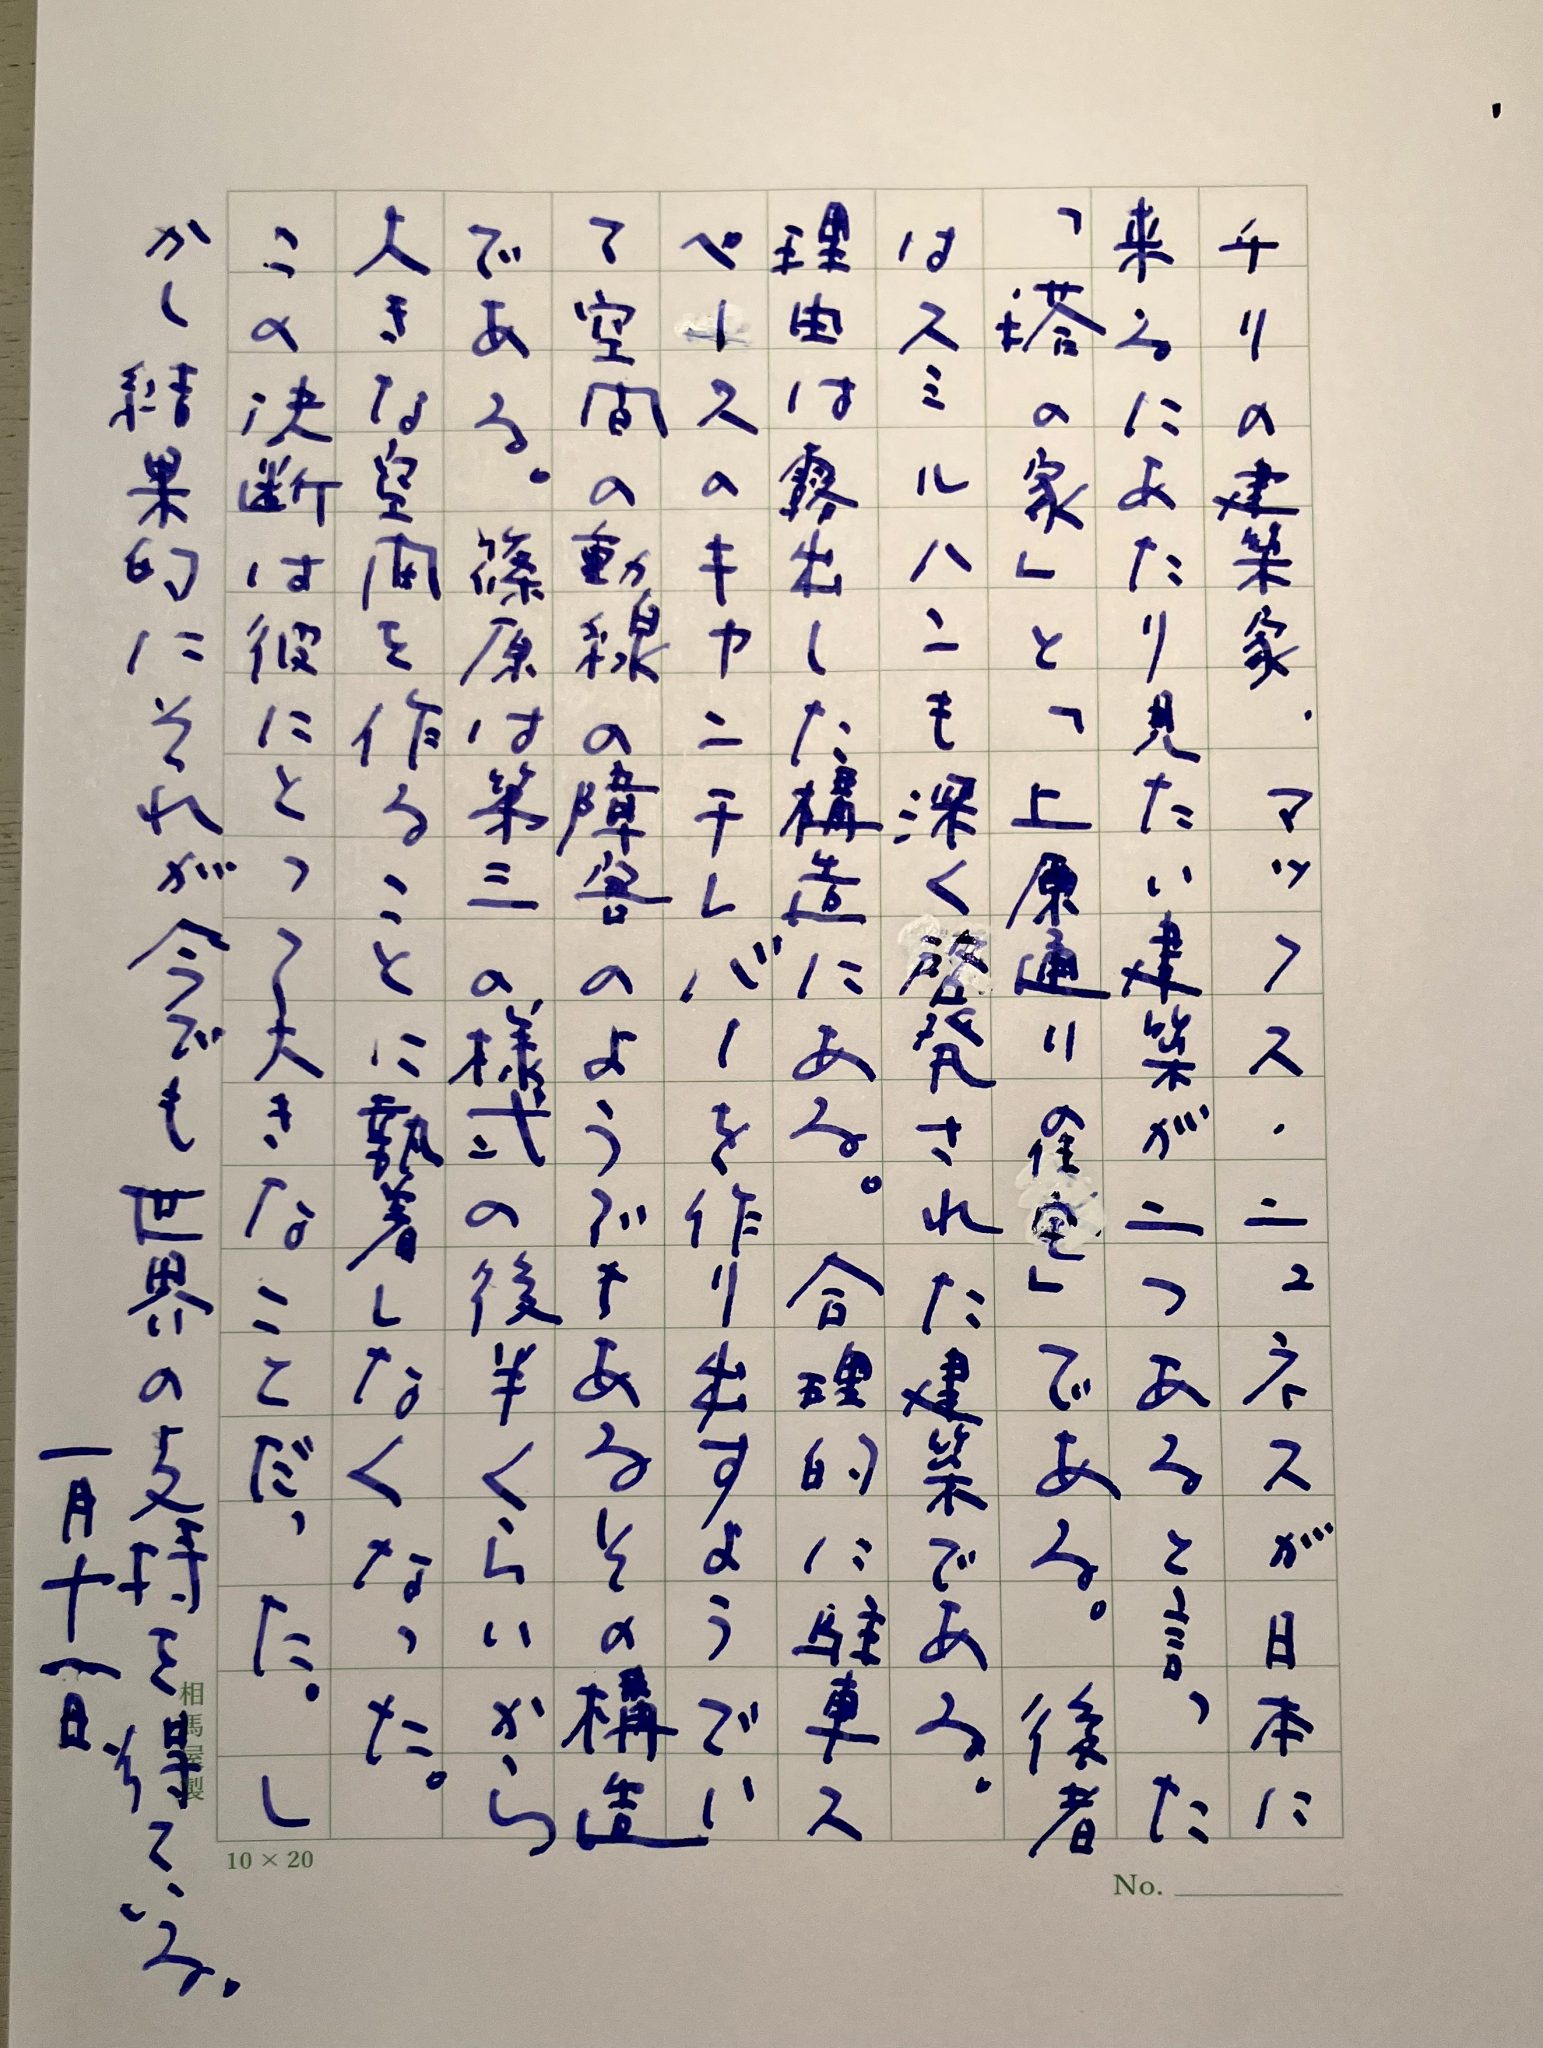 チリの建築家、マッフス・ニュネスが日本に
来るにあたり見たい建築が二つあると言った
「塔の家」と「上原通りの住宅」である。後者
はスミルハンも深く啓発された建築である。
理由は露出した構造にある。合理的に駐車ス
ペースのキャンチレバーを作り出すようでい
て空間の動線の障害のようでもあるその構造
である。篠原は第三の様式の後半くらいから
大きな空間を作ることに執着しなくなった。
この決断は彼にとって大きなことだった。し
かし結果的にそれが今でも世界の支持を得ている。
一月十一日
相馬屋製
10×20
No.